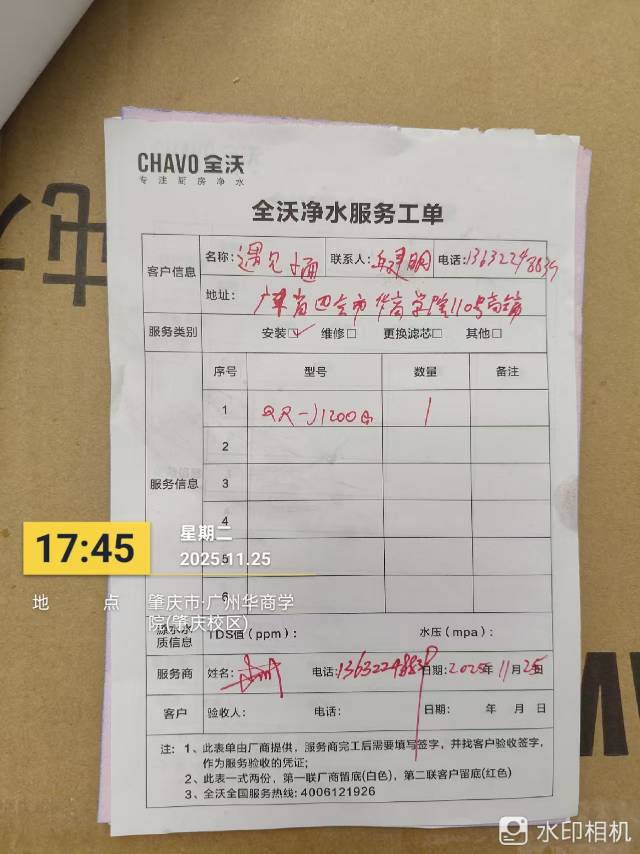 CHAVO 全沃
专注厨房净水
全沃净水服务工单
客户信息
名称：遇见 联系人： 明 电话：
地址：广东省四会市华商学院110号商铺
服务类别 安装☑ 维修□ 更换滤芯□ 其他□
服务信息
序号 型号 数量 备注
1 QR-J1200G 1
2
3
4
5
6
源水水质信息 TDS值（ppm）： 水压（mpa）：
服务商 姓名： 电话： 日期：2025年11月25日
客户 验收人： 电话： 日期： 年 月 日
注：1、此表单由厂商提供，服务商完工后需要填写签字，并找客户验收签字，
作为服务验收的凭证；
2、此表一式两份，第一联厂商留底(白色)，第二联客户留底(红色)
3、全沃全国服务热线：4006121926
17:45
星期二
2025.11.25
地 点 肇庆市·广州华商学
院(肇庆校区)
水印相机